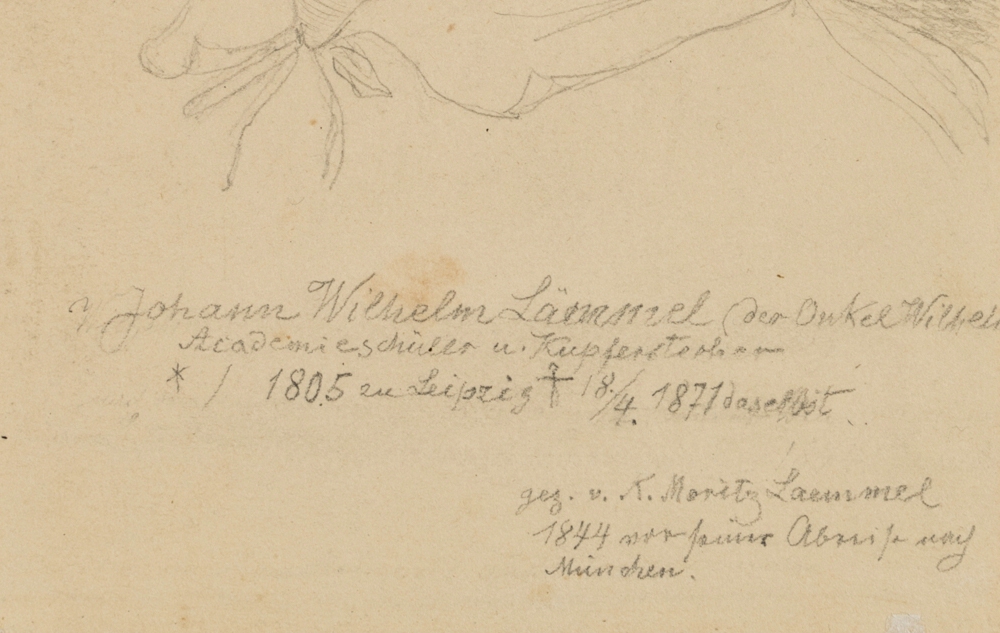 Johann Wilhelm Lämmel (der Onkel Wilhel
Academieschüler u. Kupferstecher
* / 1805 zu Leipzig † 18./4. 1871 daselbst.
gez. v. K. Moritz Laemmel
1844 vor seiner Abreise nach
München.